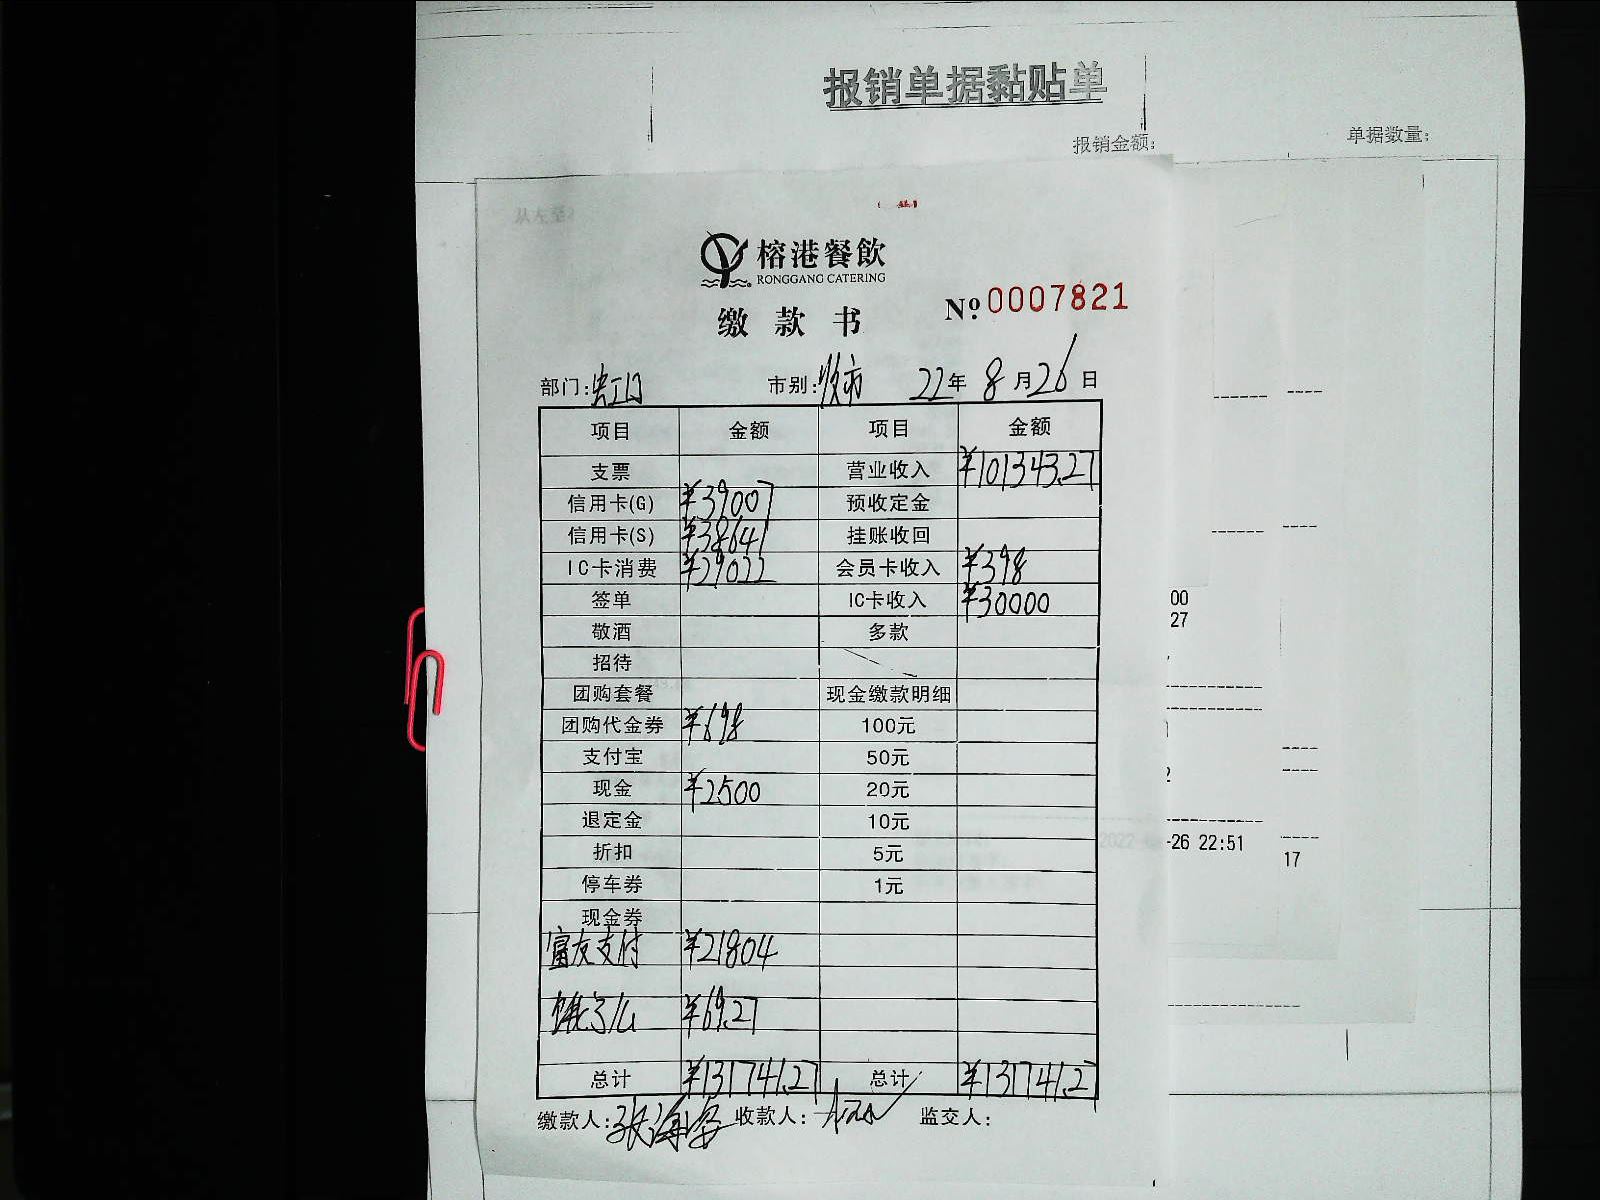 报销单据黏贴单
报销金额: 单据数量:
榕港餐飲
RONGGANG CATERING
缴款书 № 0007821
部门:虹口 市别:晚市 22年8月26日
项目 金额 项目 金额
支票 营业收入 ¥101343.27
信用卡(G) ¥39007 预收定金
信用卡(S) ¥38641 挂账收回
IC卡消费 ¥29022 会员卡收入 ¥398
签单 IC卡收入 ¥30000
敬酒 多款
招待
团购套餐 现金缴款明细
团购代金券 ¥698 100元
支付宝 50元
现金 ¥2500 20元
退定金 10元
折扣 5元
停车券 1元
现金券
富友支付 ¥21804
饿了么 ¥69.27
总计 ¥131741.27 总计 ¥131741.2
缴款人: 收款人: 监交人:
00
27
-26 22:51
17